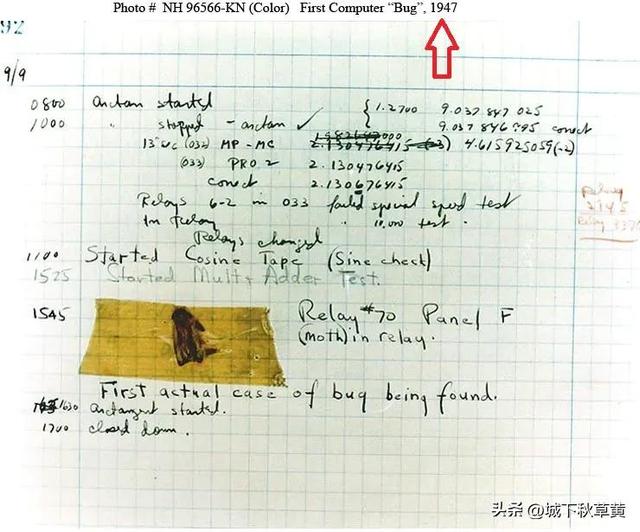 Photo # NH 96566-KN (Color) First Computer “Bug”, 1947
92
9/9
0800 arctan started { 1.2700 9.037 847 025
1000 " stopped - arctan ✓ 9.037 846 995 correct
13"uc (032) MP - MC 2.130476415 4.615925059(-2)
(033) PRO 2 2.130476415
correct 2.130676415
Relays 6-2 in 033 failed special speed test
In Relay " 10.000 test.
Relays changed
Relay
2145
Relay 3370
1100 Started Cosine Tape (Sine check)
1525 Started Mult + Adder Test.
1545 Relay #70 Panel F
(moth) in relay.
First actual case of bug being found.
1630 arctangent started.
1700 closed down.
头条 @城下秋草黄